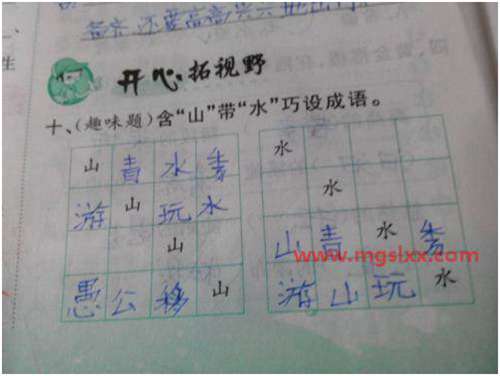 还要高高兴
生
开心拓视野
十、(趣味题)含“山”带“水”巧设成语。
山 青 水 秀
游 山 玩 水
山
愚 公 移 山
水
水
山 青 水 秀
游 山 玩 水
www.mgslxx.com